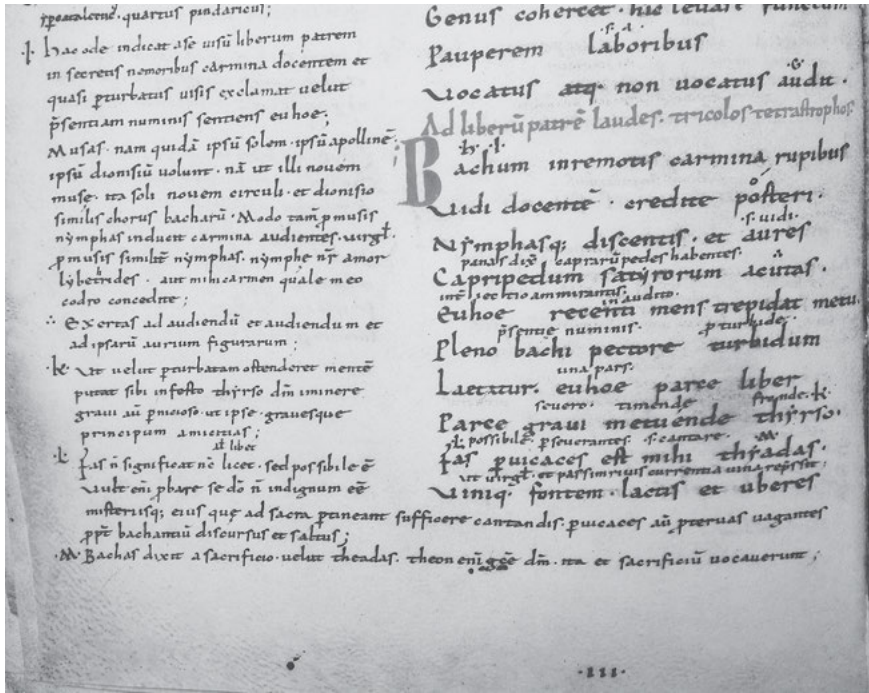 quartus pindaricus;
Hac ode indicat ase uisū liberum patrem
in secretis nemoribus carmina docentem et
quasi pturbatus uisis exclamat uelut
p̄sentiam numinis sentiens euhoe;
Musas. nam quidā ipsū solem. ipsū apollinē.
ipsū dionisiū uolunt. nā ut illi nouem
muse. ita soli nouem circuli. et dionisio
similis chorus bacharū. Modo tam̄ p musis
nymphas inducit carmina audientes. uirgł.
p musis similit̄ nymphas. nymphe nr̄ amor
lybetrides. aut mihi carmen quale meo
codro concedite;
∴ Exertas ad audiendū et audiendum et
ad ipsarū aurium figurarum;
·k· Vt uelut pturbatam ostenderet mentē
putat sibi infesto thyrso dm̄ iminere
graui aū pnicioso. ut ipse. grauesque
principum amicitias;
ał libet
·L· Fas n̄ significat nc̄ licet. sed possibile ē
Vult eni pbare se do n̄ indignum eē
misteriisq; eius que ad sacra ptineant sufficere cantandis. puicaces aū pteruas uagantes
ppt̄ bachantiū discursus et saltus;
·M· Bachas dixit a sacrificio. uelut theadas. theon eni gcē dm̄. ita et sacrificiū uocauerunt;
Genus cohercet. hic leuare functum
·s· ·A·
Pauperem laboribus
Vocatus atq. non uocatus audit.
Ad liberū patrē laudes. tricolos tetrastrophos
·h· ·I·
Bachum in remotis carmina rupibus
Vidi docentē. credite posteri.
·s· uidi.
Nymphasq; discentis. et aures
panas dix̄ caprarū pedes habentes.
Capripedum satyrorum acutas.
int̄iectio ammirantis. inaudito.
Euhoe recenti mens trepidat metu.
p̄sentie numinis. pturbide.
Pleno bachi pectore turbidum
una pars.
Laetatur. euhoe parce liber
seuero. timende fronde. ·k·
Parce graui metuende thyrso.
·L· possibile. pseuerantes. ·s· cantare. ·M·
Fas puicaces est mihi thyadas.
ut uirgł. et passim riuis currentia uina repssit;
Viniq. fontem. lactis et uberes
·III·